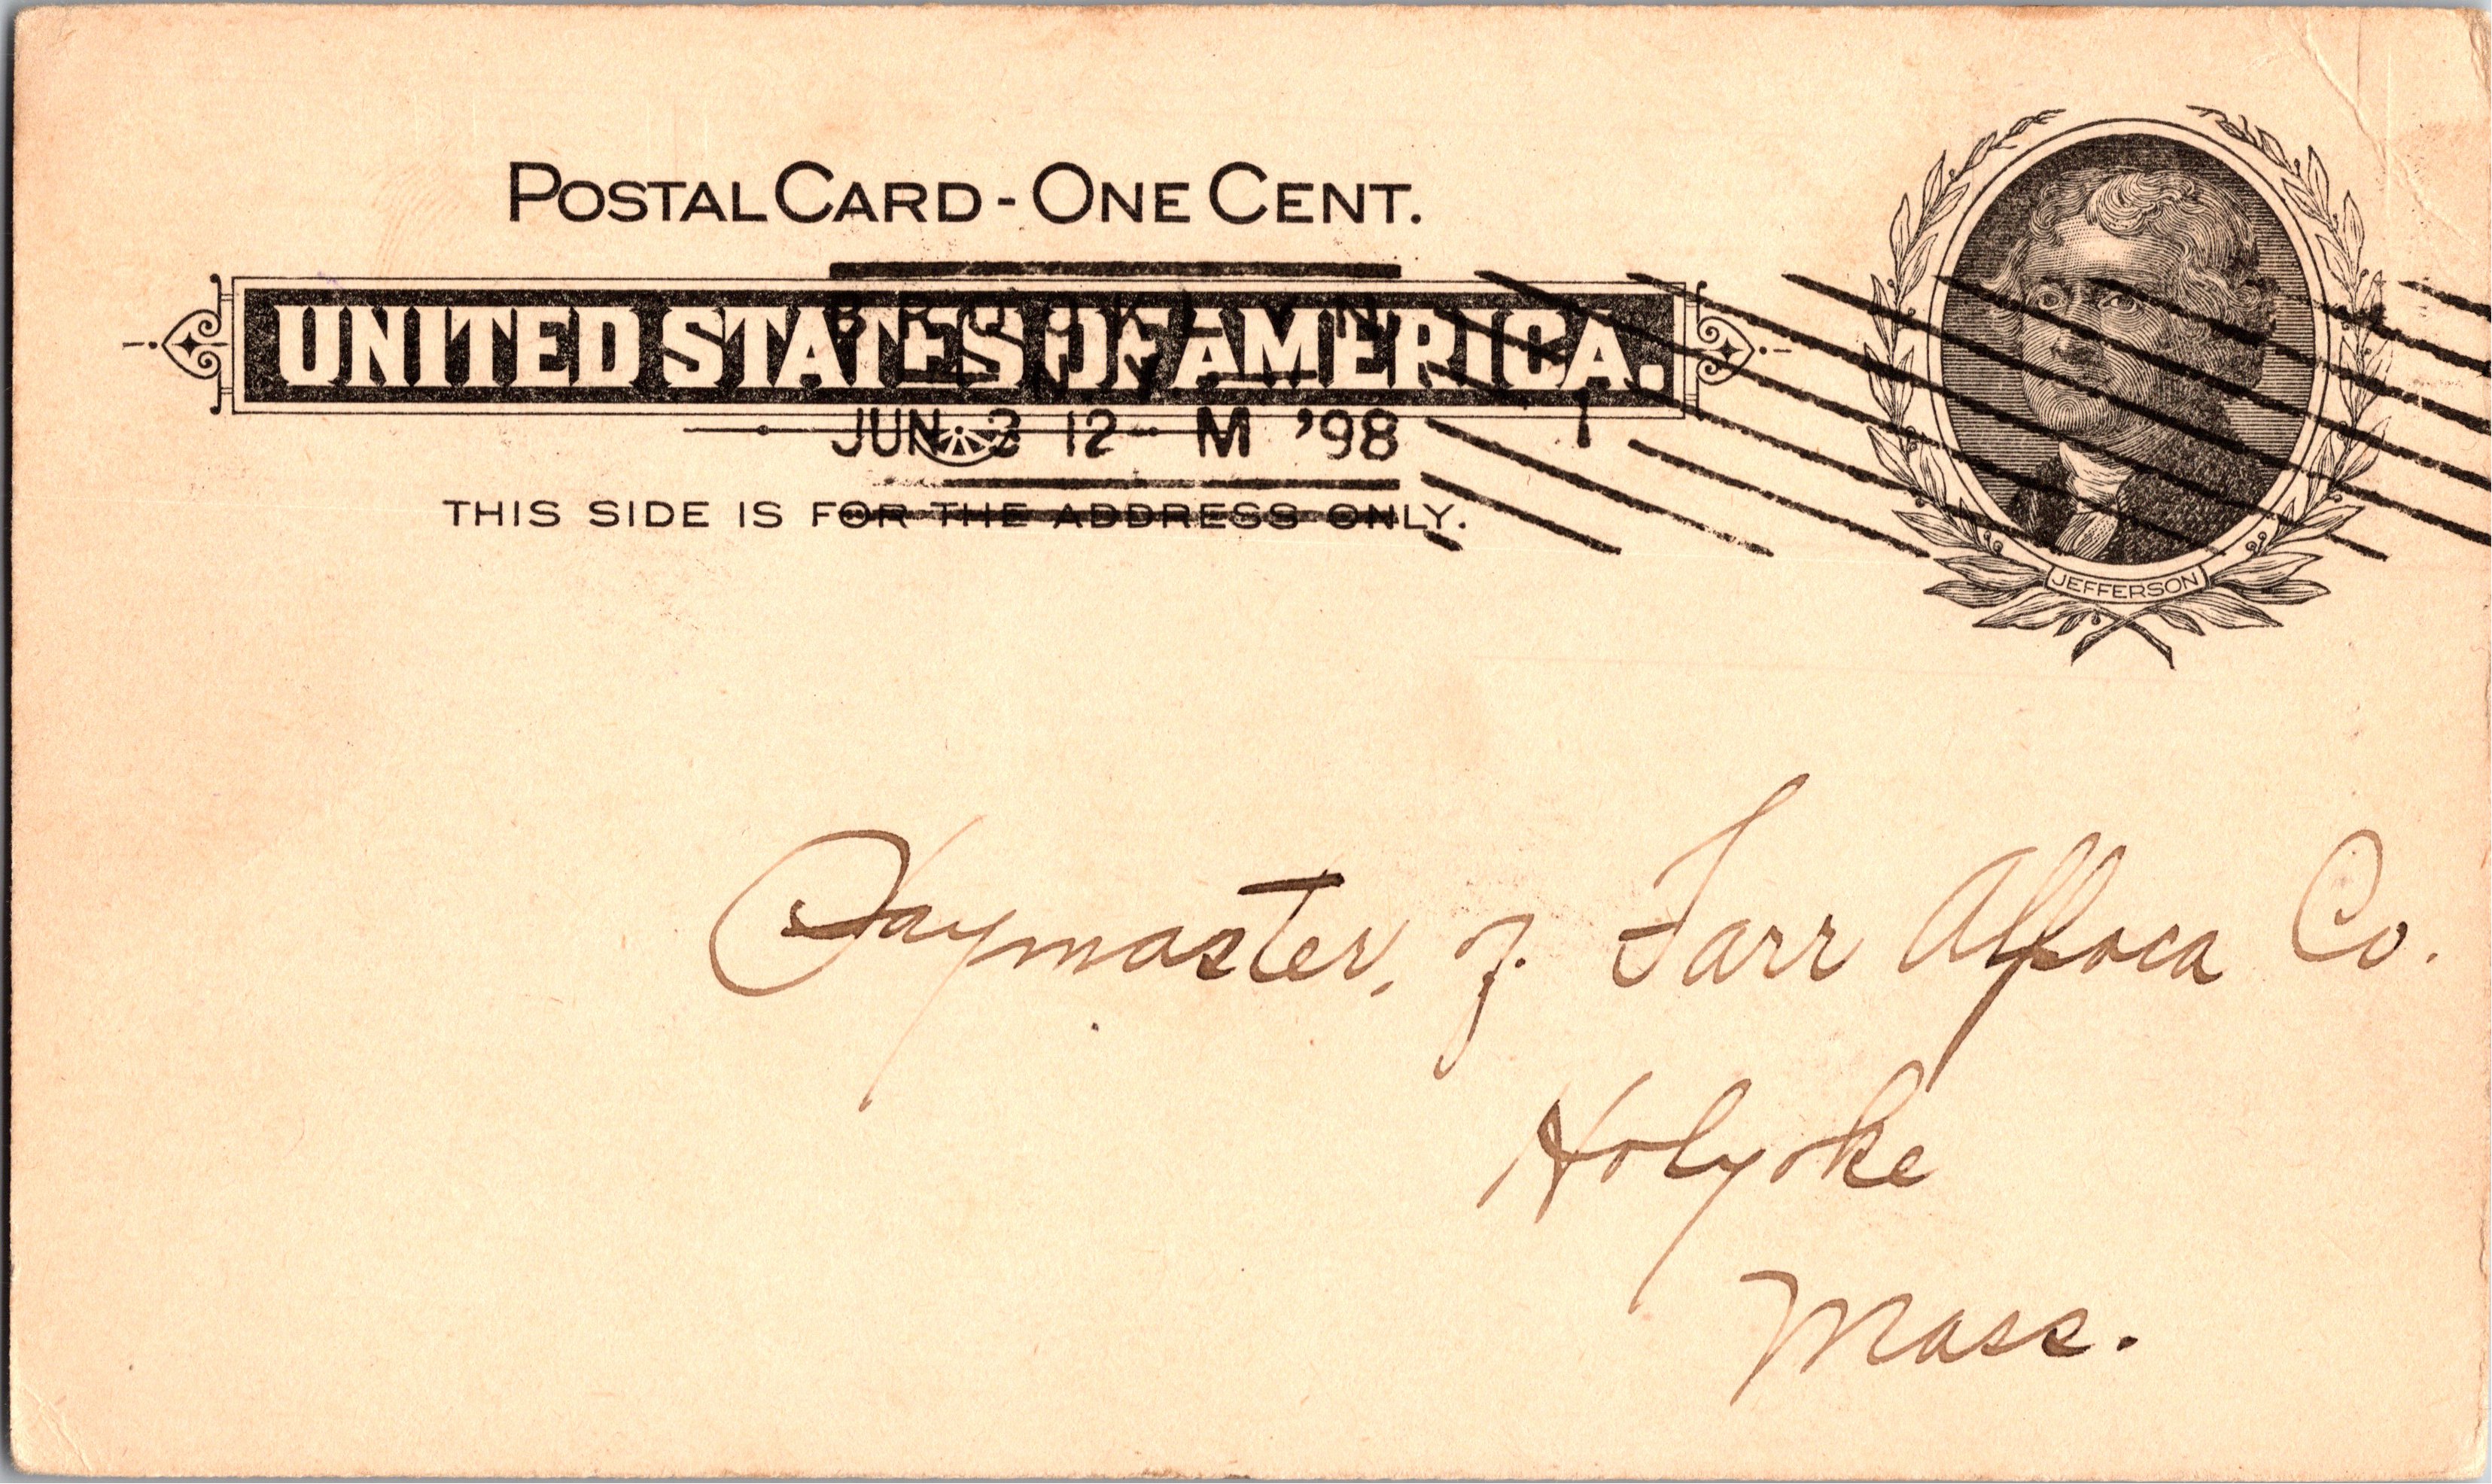 POSTAL CARD - ONE CENT.
UNITED STATES OF AMERICA.
BROOKLYN
JUN 3 12 M '98
1
THIS SIDE IS FOR THE ADDRESS ONLY.
JEFFERSON
Paymaster, of Farr Alpaca Co.
Holyoke
Mass.